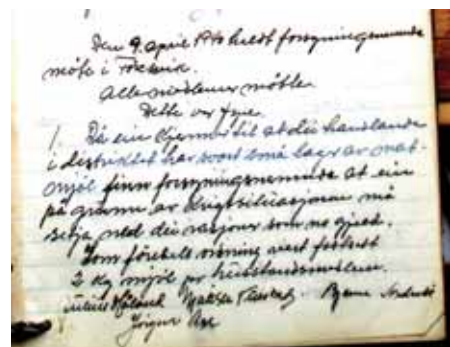 Den 9. april 1940 heldt forsyningsnemnda
møte i
Alle medlemer møtte.
Dette var fyre.
1. Då ein kjenner til at dei handlande
i distriktet har svært små lager av mat-
mjøl finn forsyningsnemnda at ein
på grunn av krigssituasjonen må
setja ned dei rasjoner som no gjeld.
Som førebels ordning vert fastsett
2 kg mjøl pr husstandsmedlem.
Bjarne